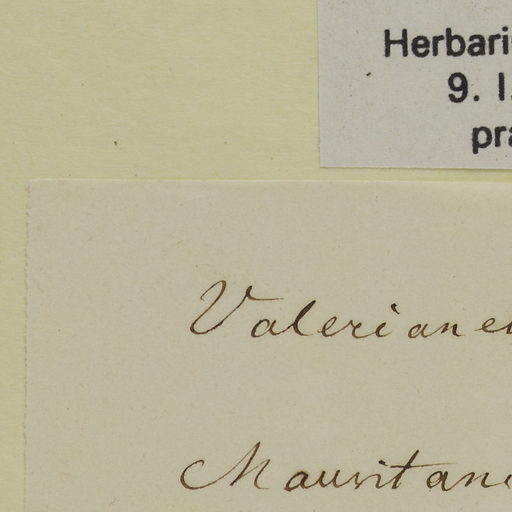 Herbari
9. I.
pra
Valeriane
Mauritan